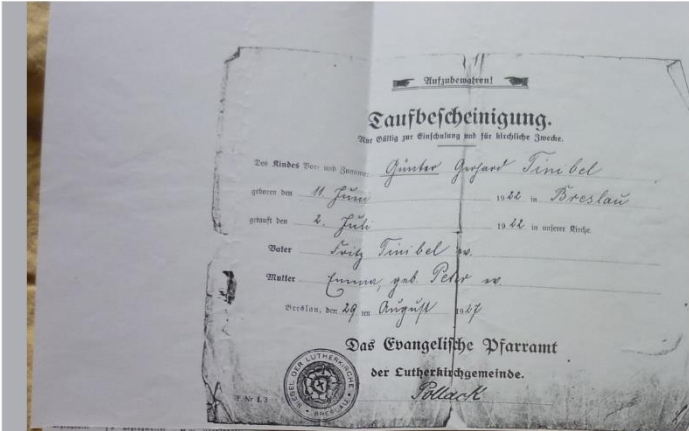 Aufzubewahren!
Taufbescheinigung.
Nur Gültig zur Einschulung und für kirchliche Zwecke.
Des Kindes Vor- und Zuname: Günter Gerhard Tinibel
geboren den 11. Juni 1922 in Breslau
getauft den 2. Juli 1922 in unserer Kirche.
Vater Fritz Tinibel
Mutter Emma, geb. Peter
Breslau, den 29 August 1927
Das Evangelische Pfarramt
der Lutherkirchgemeinde.
Pollack
SIEGEL DER LUTHERKIRCHE BRESLAU